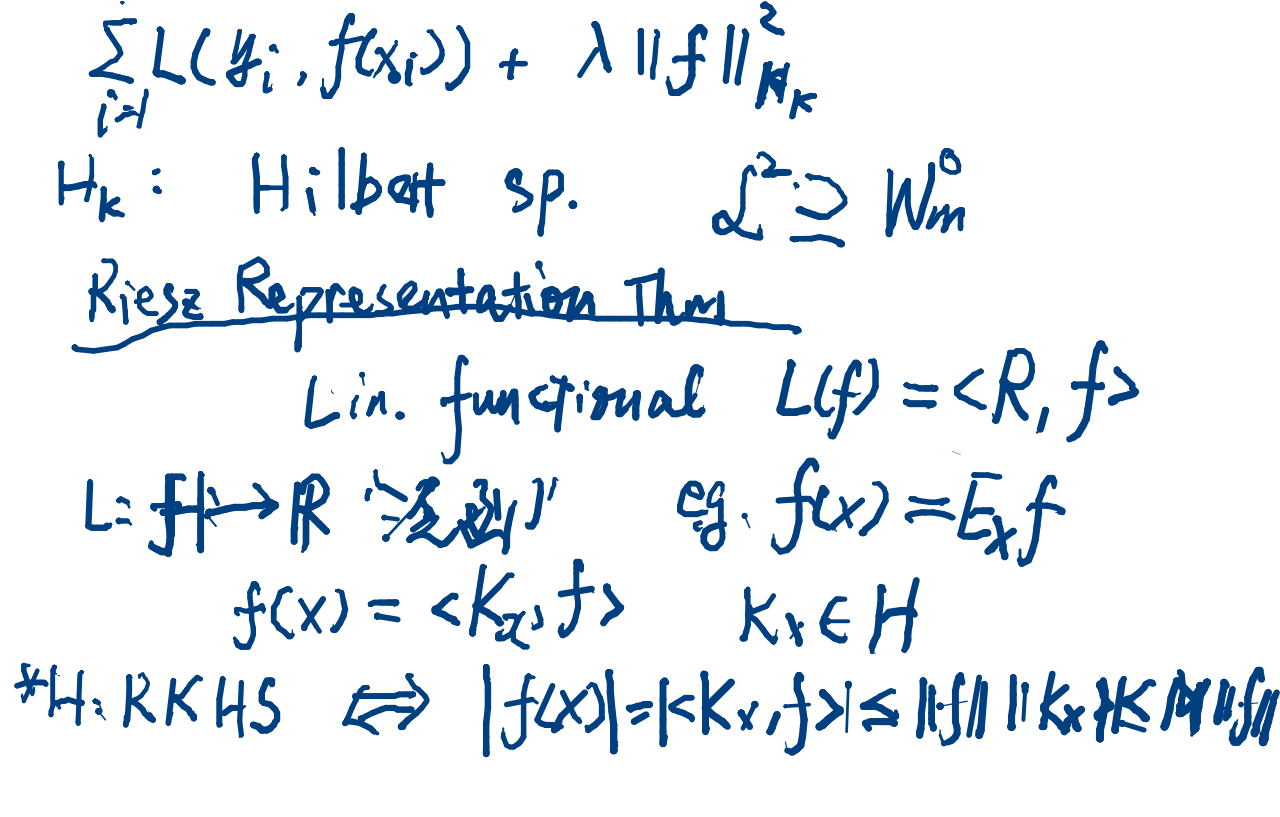 ∑_{i=1} L(y_i, f(x_i)) + λ ||f||²_{H_K}
H_K : Hilbert sp. L² ⊇ W_m^0
Riesz Representation Thm
Lin. functional L(f) = <R, f>
L: f ↦ ℝ eg. f(x) = E_x f
f(x) = <K_x, f> K_x ∈ H
*H: RKHS ⇔ |f(x)| = |<K_x, f>| ≤ ||f|| ||K_x|| ≤ M ||f||